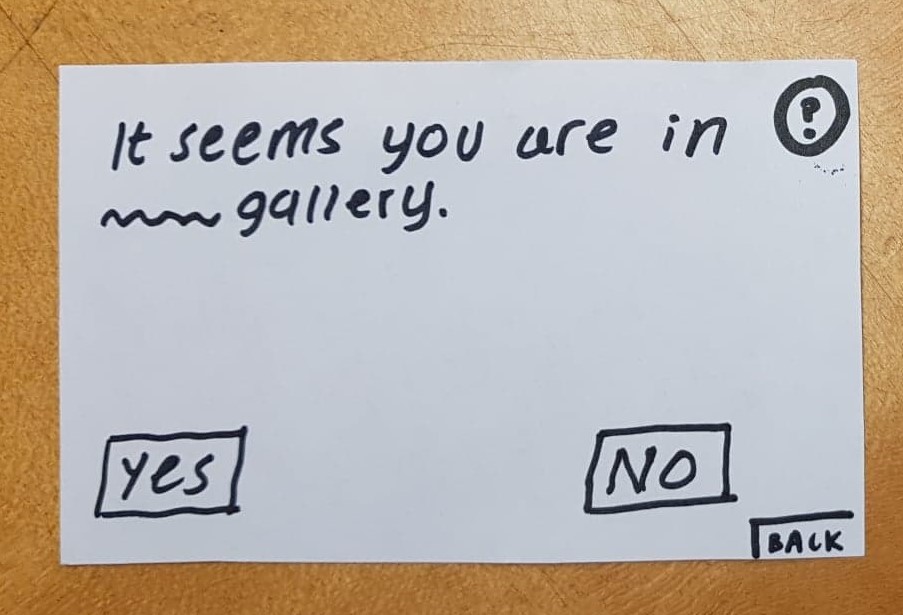 It seems you are in ?
gallery.
Yes NO
BACK